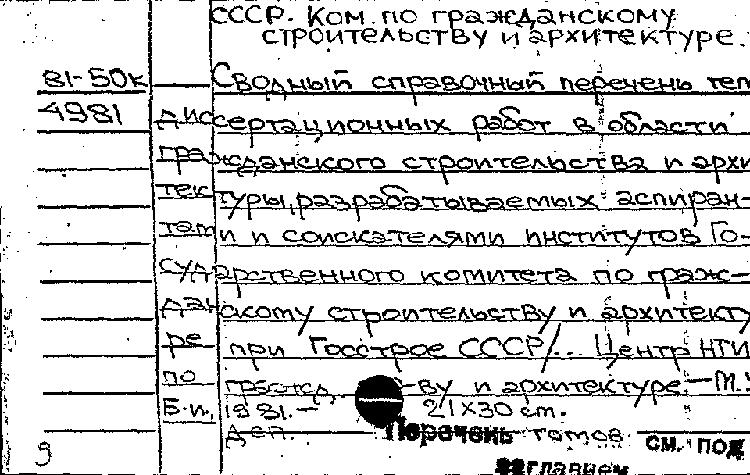 СССР. Ком. по гражданскому
строительству и архитектуре.
81-50к Сводный справочный перечень тем
4981 диссертационных работ в области
гражданского строительства и архи
тектуры, разрабатываемых аспиран-
тами и соискателями институтов Го-
сударственного комитета по граж-
данскому строительству и архитекту
ре при Госстрое СССР/.. Центр НТИ
по гражд. -ву и архитектуре.-М.:
Б.и., 1981.- 21х30 см.
Деп. Перечень томов см. под
заглавием
9